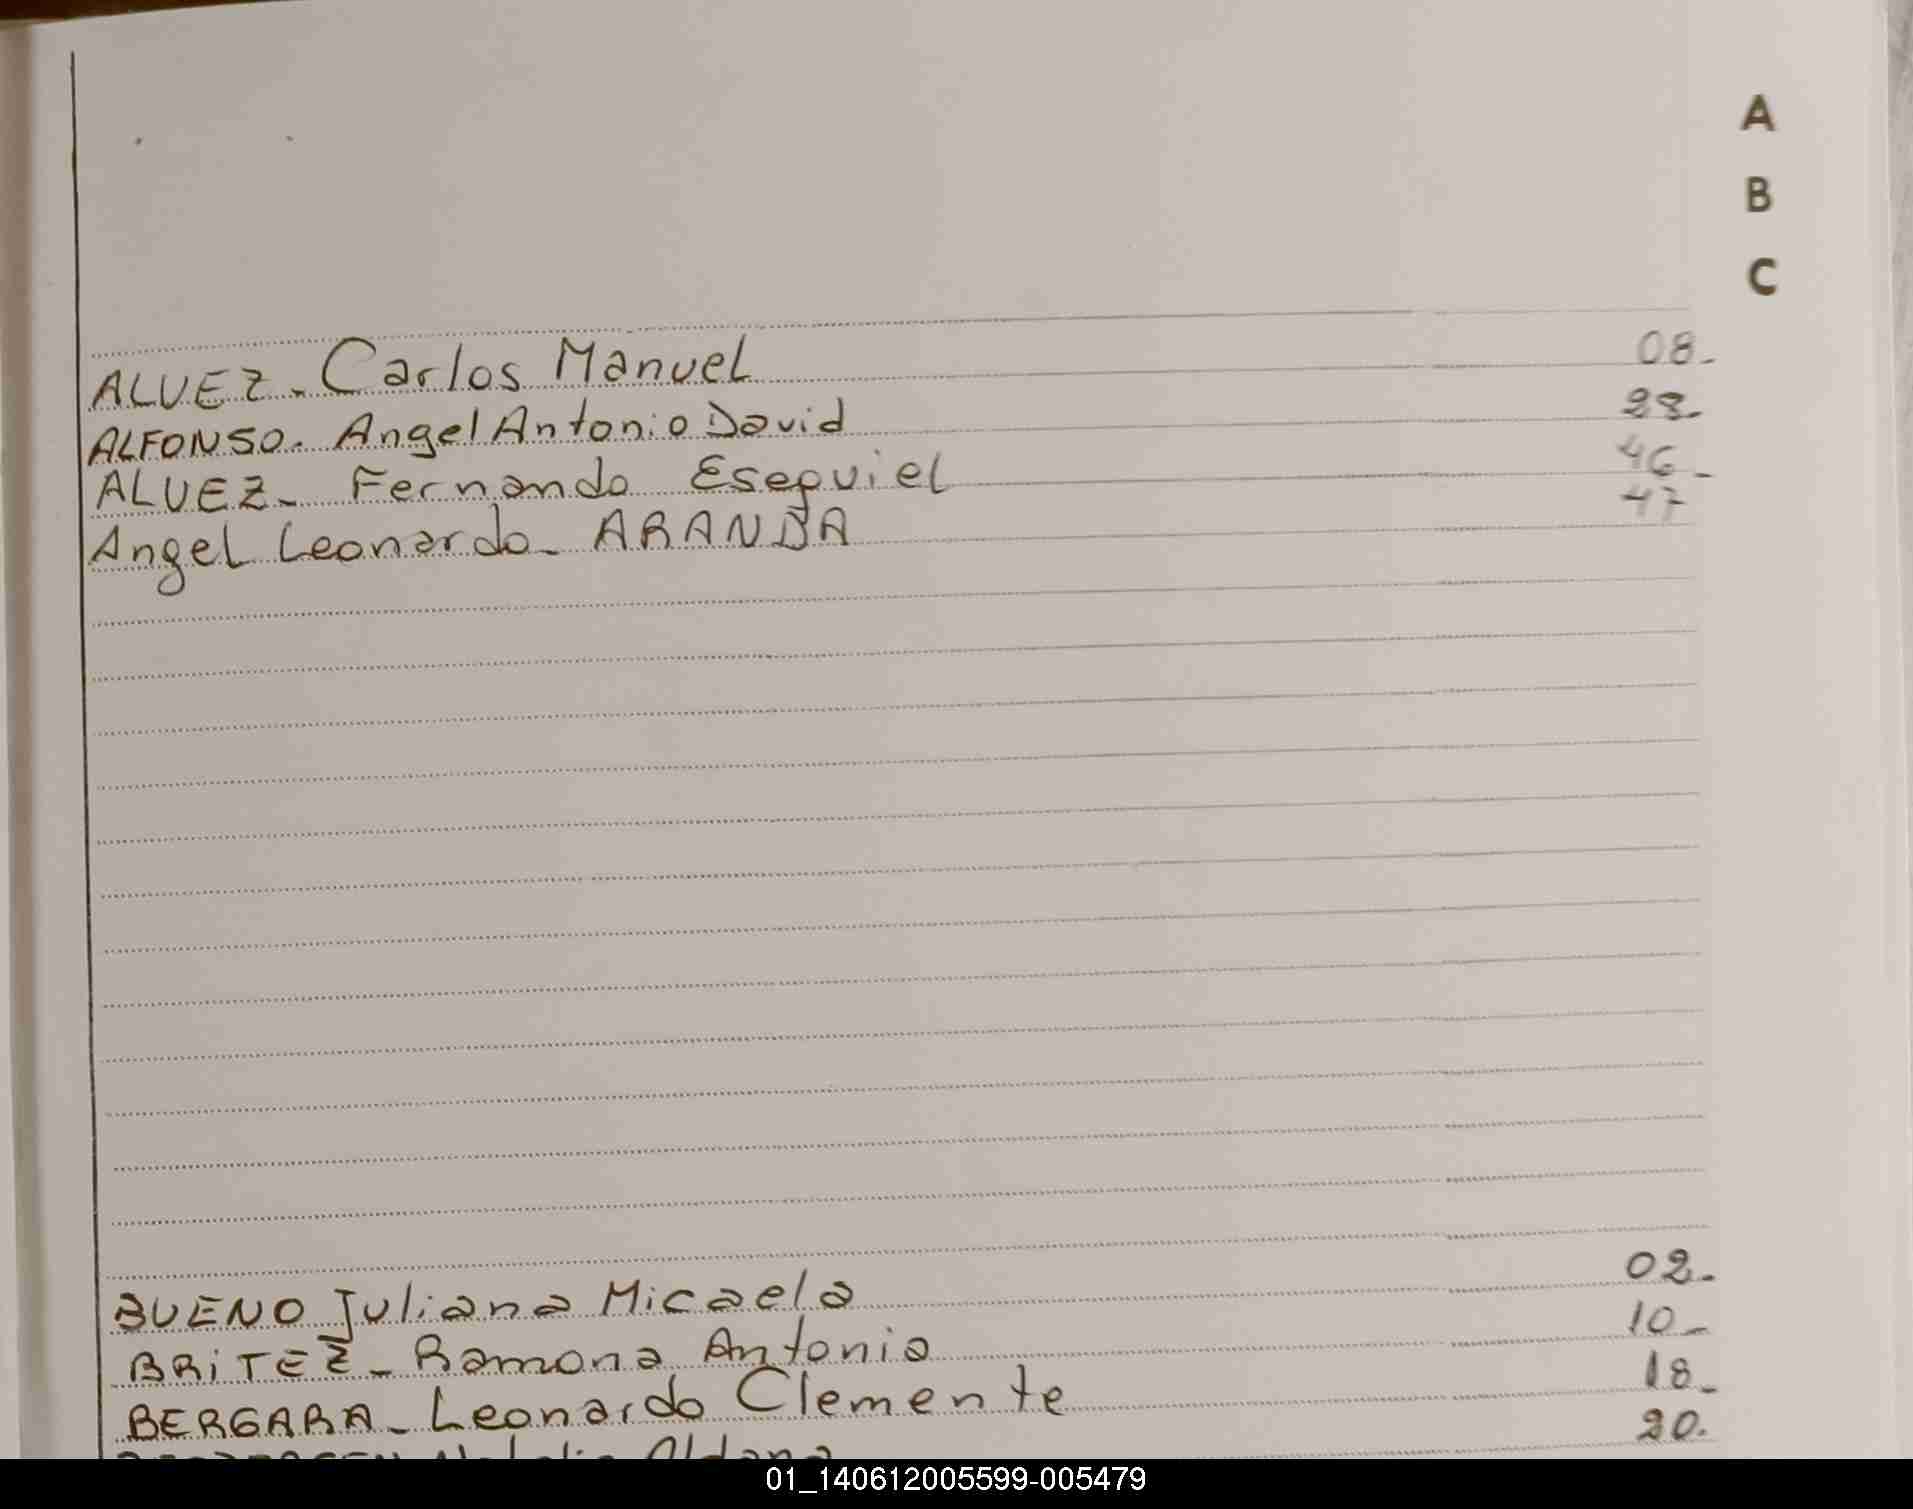 A
B
C
ALVEZ. Carlos Manuel 08-
ALFONSO. Angel Antonio David 28-
ALVEZ- Fernando Esequiel 46-
Angel Leonardo- ARANDA 47
BUENO Juliana Micaela 02-
BRiTEZ- Ramona Antonia 10-
BERGARA- Leonardo Clemente 18-
Aldana 20.
01_140612005599-005479